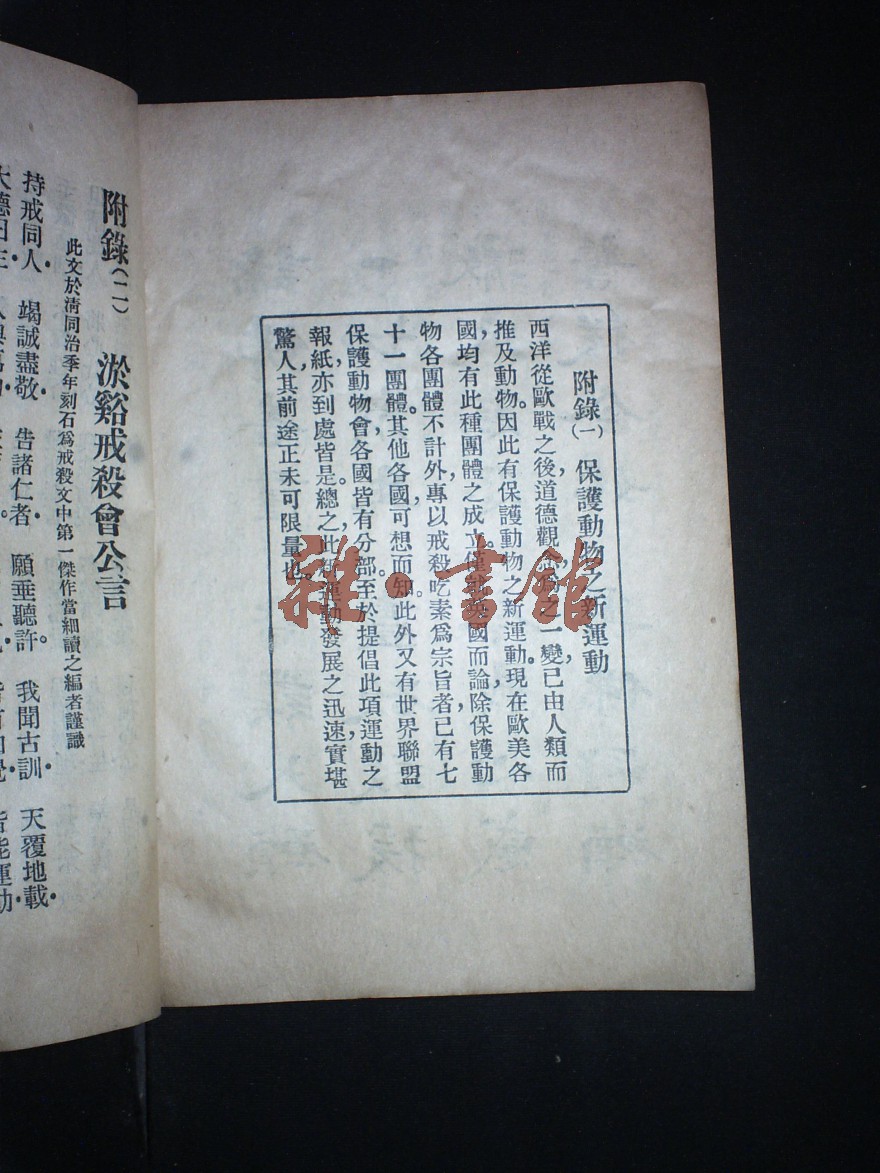 附錄(一) 保護動物之新運動
西洋從歐戰之後,道德觀念為之一變,已由人類而
推及動物。因此有保護動物之新運動。現在歐美各
國,均有此種團體之成立。僅就國而論,除保護動
物各團體不計外,專以戒殺吃素爲宗旨者,已有七
十一團體。其他各國,可想而知。此外又有世界聯盟
保護動物會,各國皆有分部。至於提倡此項運動之
報紙,亦到處皆是。總之此種運動發展之迅速,實堪
驚人,其前途正未可限量也。
附錄(二) 淤谿戒殺會公言
此文於淸同治季年刻石爲戒殺文中第一傑作當細讀之編者謹識
持戒同人 竭誠盡敬 告諸仁者 願垂聽許 我聞古訓 天覆地載
皆能運動
雜·書館